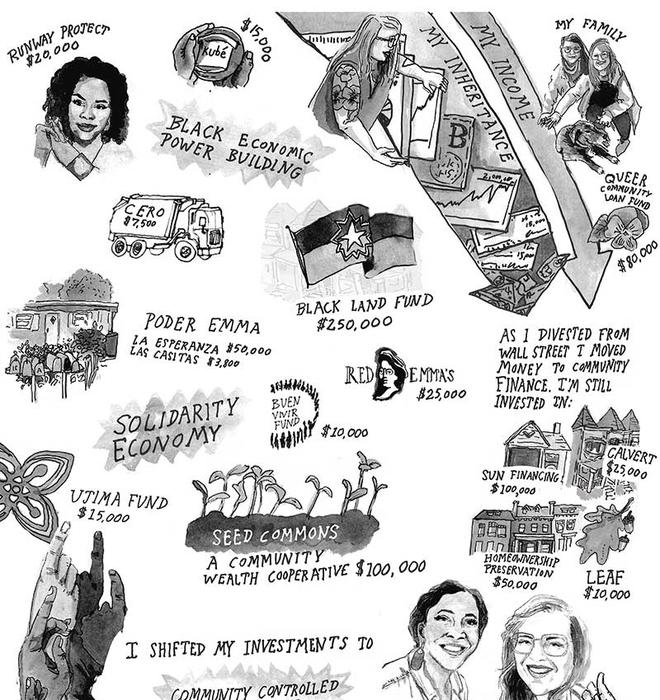 RUNWAY PROJECT
$20,000
Kubé
$15,000
MY INHERITANCE
MY INCOME
MY FAMILY
BLACK ECONOMIC
POWER BUILDING
B
QUEER
COMMUNITY
LOAN FUND
$80,000
CERO
$7,500
BLACK LAND FUND
$250,000
PODER EMMA
LA ESPERANZA $50,000
LAS CASITAS $3,800
RED EMMA'S
$25,000
AS I DIVESTED FROM
WALL STREET I MOVED
MONEY TO COMMUNITY
FINANCE. I'M STILL
INVESTED IN:
SOLIDARITY
ECONOMY
BUEN
VIVIR
FUND
$10,000
SUN FINANCING
$100,000
CALVERT
$25,000
UJIMA FUND
$15,000
SEED COMMONS
A COMMUNITY
WEALTH COOPERATIVE $100,000
HOMEOWNERSHIP
PRESERVATION
$50,000
LEAF
$10,000
I SHIFTED MY INVESTMENTS TO
COMMUNITY CONTROLLED